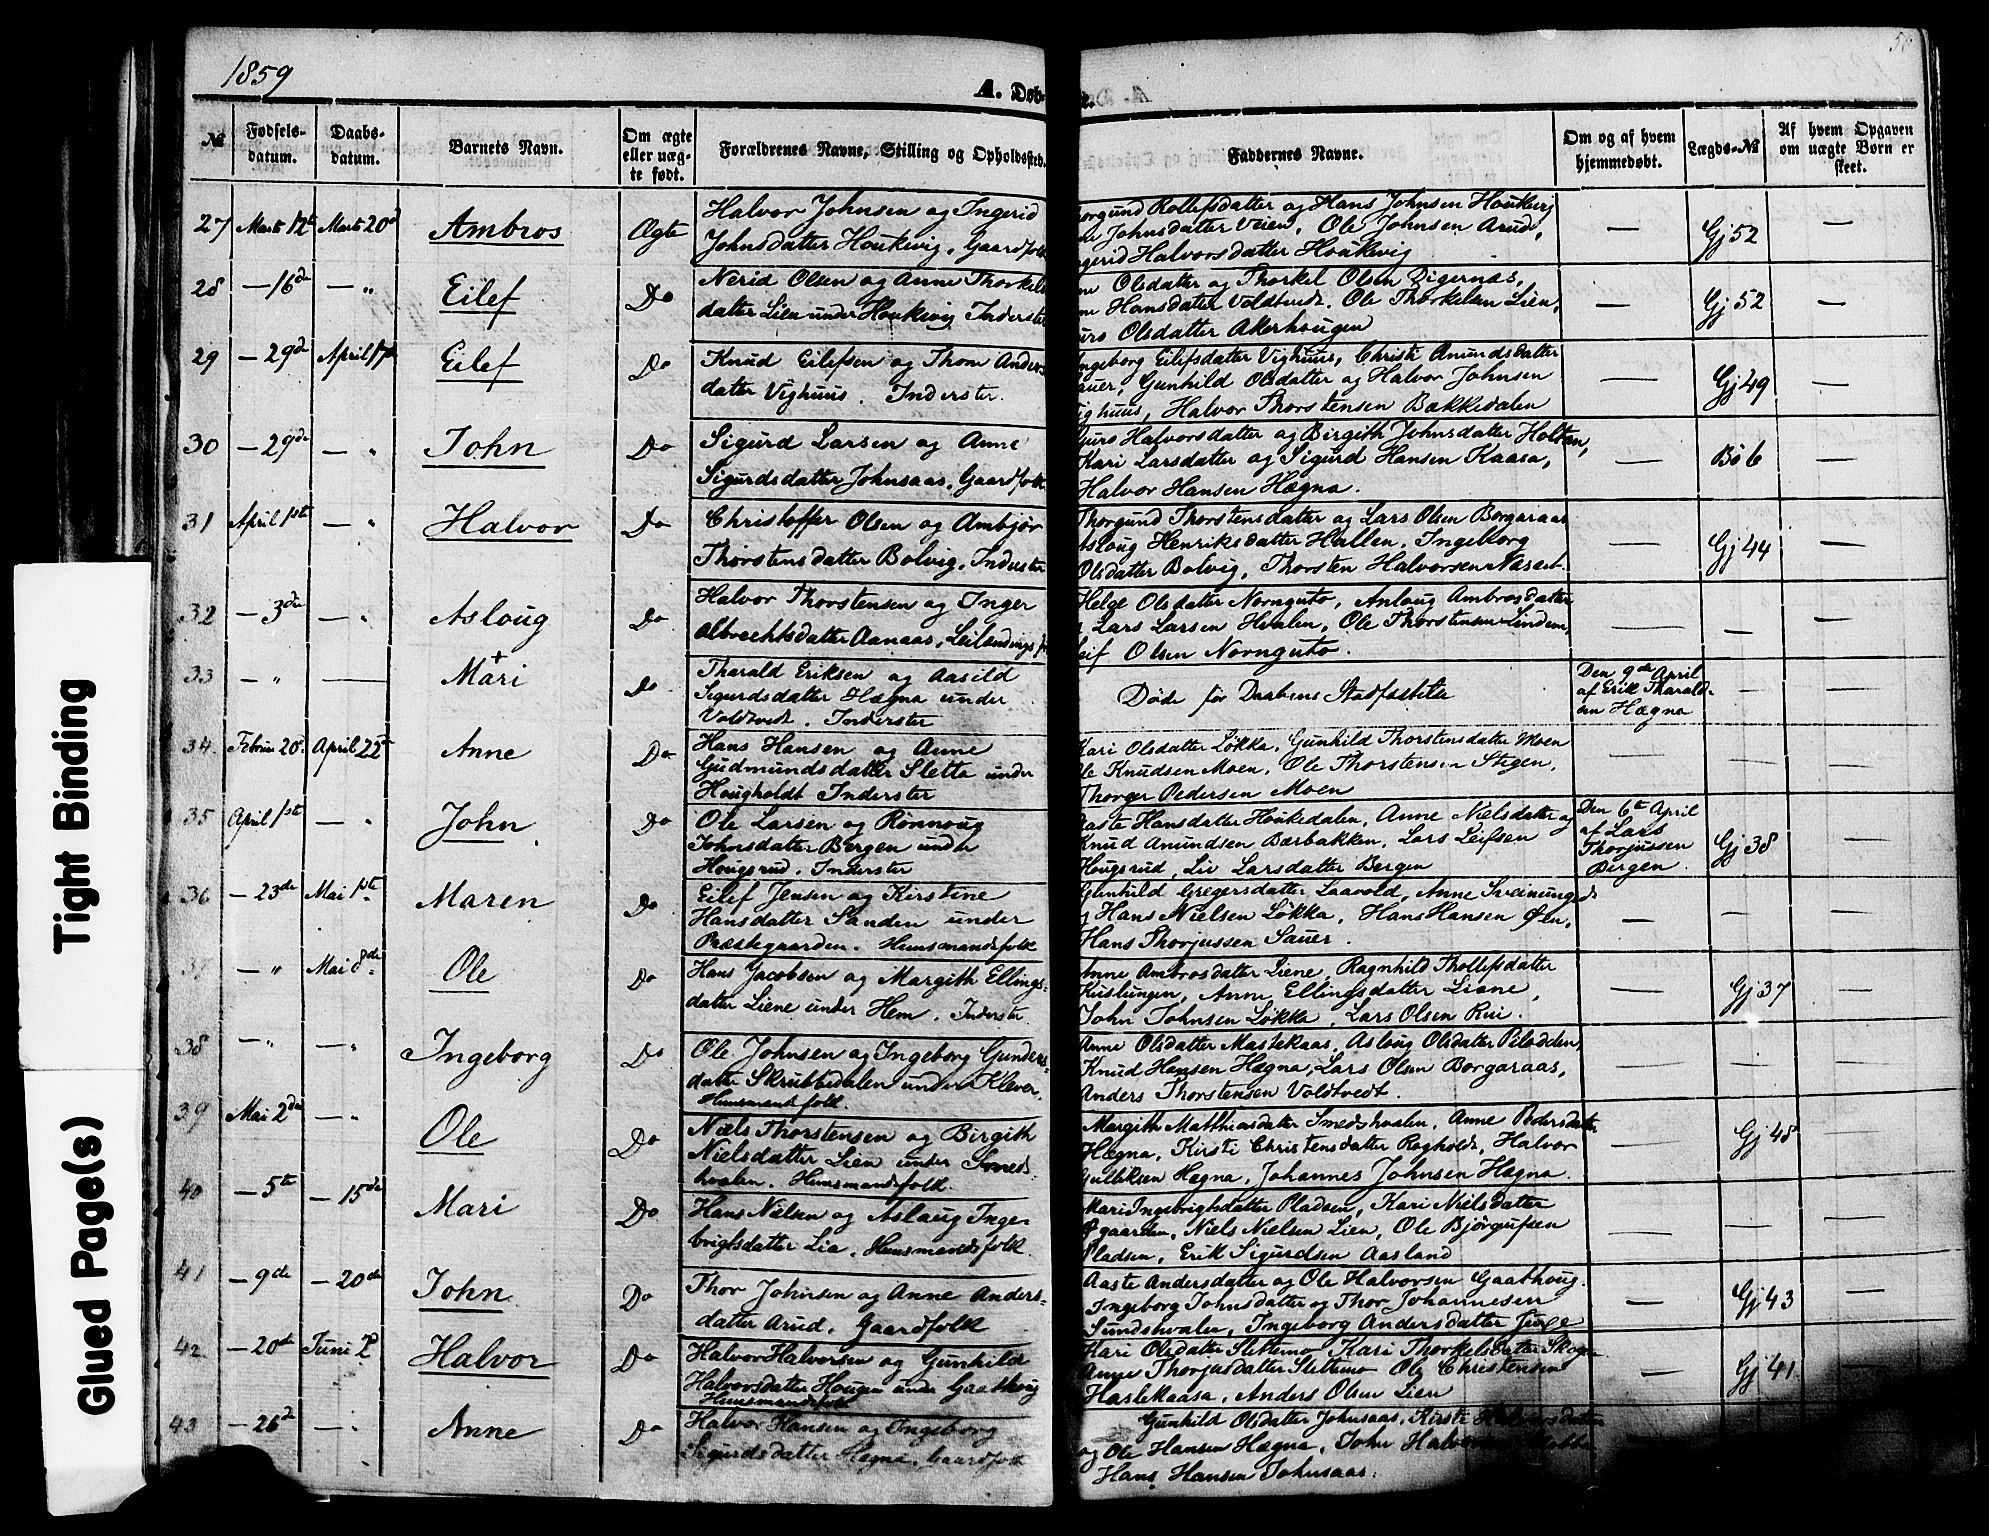 1859
50
A. Døb-
Tight Binding
Glued Page(s)
№ Fødsels-datum. Daabs-datum. Barnets Navn. Om ægte eller uæg-te født. Forældrenes Navne, Stilling og Opholdssted. Faddernes Navne. Om og af hvem hjemmedøbt. Lægds-№ Af hvem Opgaven om uægte Børn er skeet.
27 Marts 12te Marts 20de Ambros Ægte
Halvor Johnsen og Ingerid
Johnsdatter Houkevig, Gaardfolk
Rollefsdatter og Hans Johnsen Houkevig
Johnsdatter Veien, Ole Johnsen Arud,
Halvorsdatter Houkevig
— Gj 52 —
28 — 16de — " Eilef Do
Nerid Olsen og Anne Thorkels
datter Lien under Houkevig Inderster
Olsdatter og Thorkel Olsen Digernæs,
Hansdatter Voldtvedt. Ole Thorkelsen Lien,
Olsdatter Akerhougen
— Gj 52 —
29 — 29de April Eilef Do
Knud Eilefsen og Thone Anders
datter Vighuus. Inderster.
Ingeborg Eilefsdatter Vighuus, Christi Amundsdatter
Sauer, Gunhild Olsdatter og Halvor Johnsen
Vighuus, Halvor Thorstensen Bakkedalen
— Gj 49 —
30 — 29de — " John Do
Sigurd Larsen og Anne
Sigurdsdatter Johnsaas, Gaardfolk
Guro Halvorsdatter og Birgith Johnsdatter Holtan,
Kari Larsdatter og Sigurd Hansen Kaasa,
Halvor Hansen Hægna.
— Bø 6 —
31 April 1ste — " Halvor Do
Christoffer Olsen og Ambjør
Thorstensdatter Bolvig, Inderster
Thorgund Thorstensdatter og Lars Olsen Borgaraas
Asloug Henriksdatter Hallen, Ingeborg
Olsdatter Bolvig, Thorsten Halvorsen
— Gj 44 —
32 — 3die — " Asloug Do
Halvor Thorstensen og Inger
Albrechtsdatter Aanaas, Leilændings
Helge Olsdatter Nornguto, Asloug Ambrosdatter
Lars Larsen Hvalen, Ole Thorstensen Lindem,
Olsen Nornguto.
— — —
33 — " — Mari + Do
Tharald Eriksen og Aasild
Sigurdsdatter Hægna under
Voldtvedt. Inderster
Døde før Daabens Stadfæstelse
Den 9de April
af Erik Tharald-
sen Hægna
— —
34 Februar 20. April 22 Anne Do
Hans Hansen og Anne
Gudmundsdatter Sletta under
Hougholdt Inderster
Kari Olsdatter Løkka, Gunhild Thorstensdatter Moen
Ole Knudsen Moen, Ole Thorstensen Stigen,
Thorger Pedersen Moen
— — —
35 April 1ste — " John Do
Ole Larsen og Rønnoug
Johnsdatter Bergen under
Hougsrud. Inderster
Aaste Hansdatter Houkedalen, Anne Nielsdatter og
Knud Amundsen Bærbakken, Lars Leifsen
Hougsrud, Liv Larsdatter Bergen
Den 6te April
af Lars
Thorjussen
Bergen
Gj 38 —
36 — 23de Mai 1ste Maren Do
Eilef Jensen og Kirstine
Hansdatter Sanden under
Præstegaarden. Huusmandsfolk
Gunhild Gregersdatter Laavold, Anne Sveinungsd
Hans Nielsen Løkka, Hans Hansen Øen,
Hans Thorjussen Sauer.
— — —
37 — " Mai 8de Ole Do
Hans Jacobsen og Margith Ellings-
datter Liene under Hem. Inderster
Anne Ambrosdatter Liene, Ragnhild Thollefsdatter
Anne Ellingsdatter Liene,
John Johnsen Løkka, Lars Olsen Rui.
— Gj 37 —
38 — " — " Ingeborg Do
Ole Johnsen og Ingeborg Gunders-
datter Skrubbedalen under Klever.
Huusmandsfolk.
Anne Olsdatter Mastekaas, Asloug Olsdatter
Knud Hansen Hægna, Lars Olsen Borgaraas,
Anders Thorstensen Voldtvedt.
— — —
39 Mai 2den — " Ole Do
Niels Thorstensen og Birgith
Nielsdatter Lien under Smeds-
hvalen. Huusmandsfolk.
Margith Matthiasdatter Smedshvalen, Anne Pedersdatter
Hægna, Kirsti Christensdatter Rogholdt, Halvor
Gulliksen Hægna, Johannes Johnsen Hægna.
— Gj 48 —
40 — 5te — 15de Mari Do
Hans Nielsen og Aslaug Inge-
brigtsdatter Lia, Huusmandsfolk.
Mari Ingebrigtsdatter Pladsen, Kari Nielsdatter
Øgaarden, Niels Nielsen Lien, Ole Bjørgufsen
Pladsen, Erik Sigurdsen Aasland
— — —
41 — 9de — 20de John Do
Thor Johnsen og Anne Anders-
datter Arud, Gaardfolk
Aaste Andersdatter og Ole Halvorsen Gaathoug.
Ingeborg Johnsdatter og Thor Johannesen
Sundshvalen, Ingeborg Andersdatter
— Gj 43 —
42 — 20de Juni 2den Halvor Do
Halvor Halvorsen og Gunhild
Halvorsdatter Hougen under Gaathoug
Huusmandsfolk
Kari Olsdatter Slettemo Kari Thorkelsdatter Skogen
Anne Thorjusdatter Slettemo Ole Christensen
Haslekaasa, Anders Olsen Lien
— Gj 41 —
43 — 26de — " Anne Do
Halvor Hansen og Ingeborg
Sigurdsdatter Hægna. Gaardfolk
Gunhild Olsdatter Johnsaas, Kirsti Halvorsdatter
og Ole Hansen Hægna, John
Hans Hansen Johnsaas.